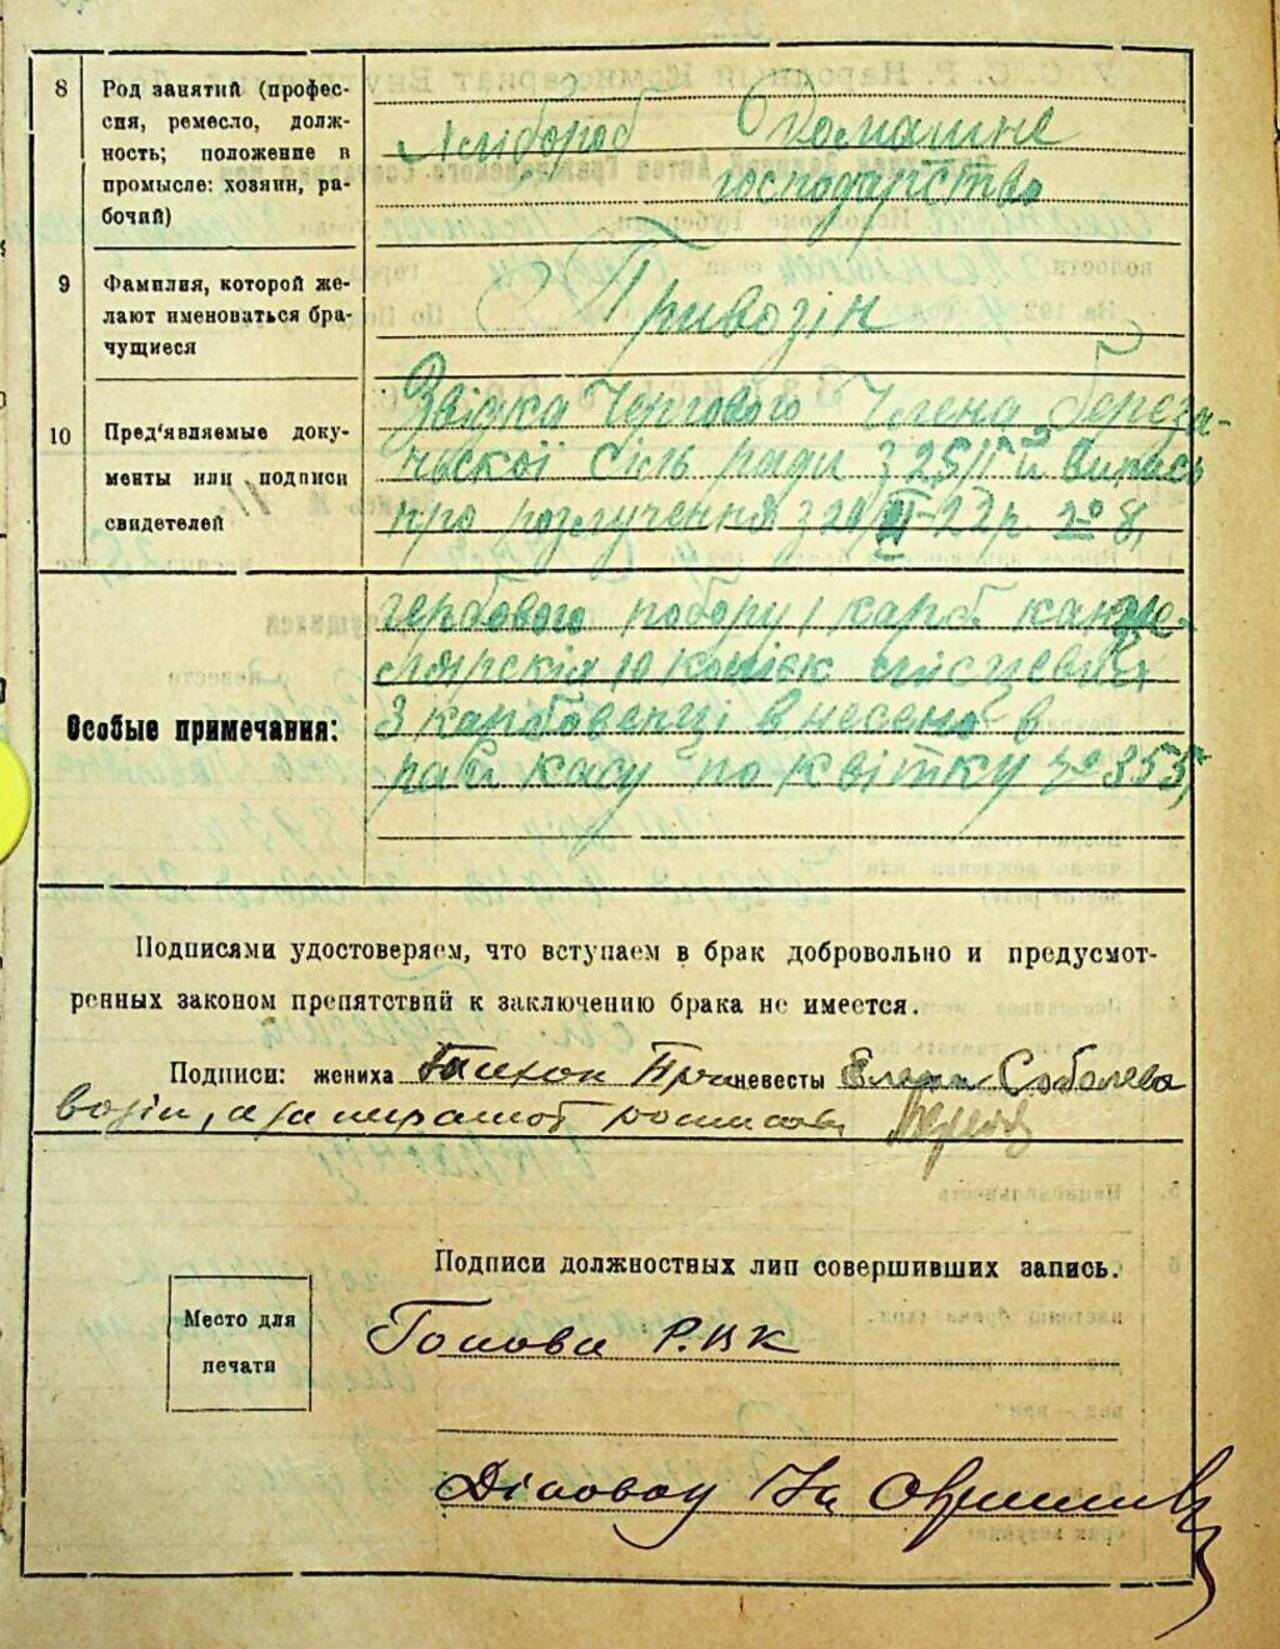 8
Род занятий (профес-
сия, ремесло, долж-
ность; положение в
промысле: хозяин, ра-
бочий)
Хлібороб Домашне
господарство
9
Фамилия, которой же-
лают именоваться бра-
чущиеся
Привозін
10
Пред'являемые доку-
менты или подписи
свидетелей
Звідка Чергового Члена
сіль ради з 25/II й випись
про розлучення з р. № 8,
Особые примечания:
гербового побору 1 карб. канце-
лярския 10 копієк місцевих
3 карбованці внесено в
касу по квітку № 355
Подписями удостоверяем, что вступаем в брак добровольно и предусмот-
ренных законом препятствий к заключению брака не имеется.
Подписи: жениха Тихон При невесты Елена Соболева
возін, а за
Подписи должностных лип совершивших запись.
Место для
печати
Голова Р.В.К
Діловод